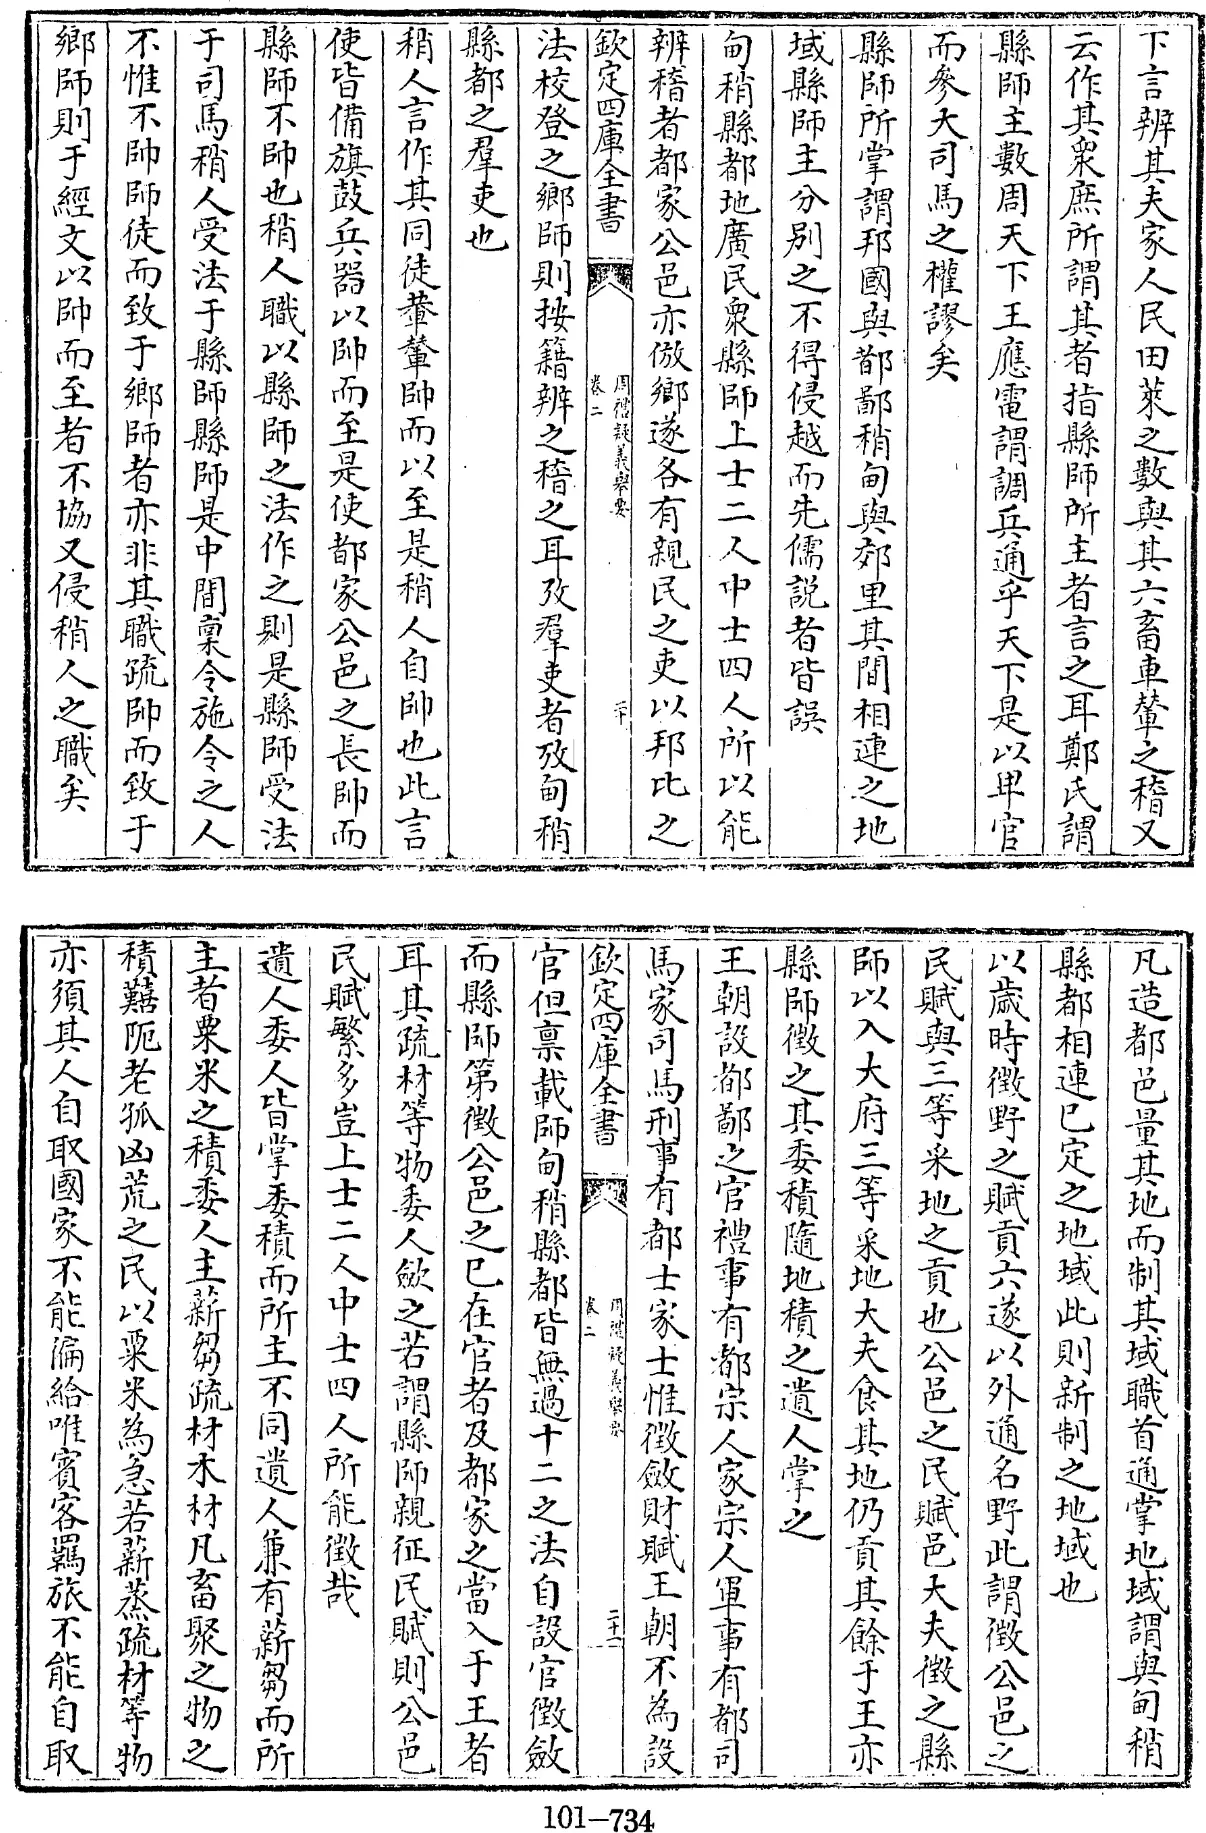 下言辨其夫家人民田萊之數與其六畜車輦之稽又
云作其衆庶所謂其者指縣師所主者言之耳鄭氏謂
縣師主數周天下王應電謂調兵通乎天下是以卑官
而參大司馬之權謬矣
縣師所掌謂邦國與都鄙稍甸與郊里其間相連之地
域縣師主分別之不得侵越而先儒説者皆誤
甸稍縣都地廣民衆縣師上士二人中士四人所以能
辨稽者都家公邑亦倣鄉遂各有親民之吏以邦比之
欽定四庫全書
周禮疑義舉要
卷二
二十
法校登之鄉師則按籍辨之稽之耳攷羣吏者攷甸稍
縣都之羣吏也
稍人言作其同徒輂輦帥而以至是稍人自帥也此言
使皆備旗鼓兵器以帥而至是使都家公邑之長帥而
縣師不帥也稍人職以縣師之法作之則是縣師受法
于司馬稍人受法于縣師縣師是中間稟令施令之人
不惟不帥師徒而致于鄉師者亦非其職疏帥而致于
鄉師則于經文以帥而至者不協又侵稍人之職矣
凡造都邑量其地而制其域職首通掌地域謂與甸稍
縣都相連已定之地域此則新制之地域也
以歲時徵野之賦貢六遂以外通名野此謂徵公邑之
民賦與三等采地之貢也公邑之民賦邑大夫徵之縣
師以入大府三等采地大夫食其地仍貢其餘于王亦
縣師徵之其委積隨地積之遺人掌之
王朝設都鄙之官禮事有都宗人家宗人軍事有都司
馬家司馬刑事有都士家士惟徵斂財賦王朝不為設
欽定四庫全書
周禮疑義舉要
卷二
二十一
官但稟載師甸稍縣都皆無過十二之法自設官徵斂
而縣師第徵公邑之已在官者及都家之當入于王者
耳其疏材等物委人斂之若謂縣師親征民賦則公邑
民賦繁多豈上士二人中士四人所能徵哉
遺人委人皆掌委積而所主不同遺人兼有薪芻而所
主者粟米之積委人主薪芻疏材木材凡畜聚之物之
積囏阨老孤凶荒之民以粟米為急若薪蒸疏材等物
亦須其人自取國家不能徧給唯賓客羈旅不能自取
101-734